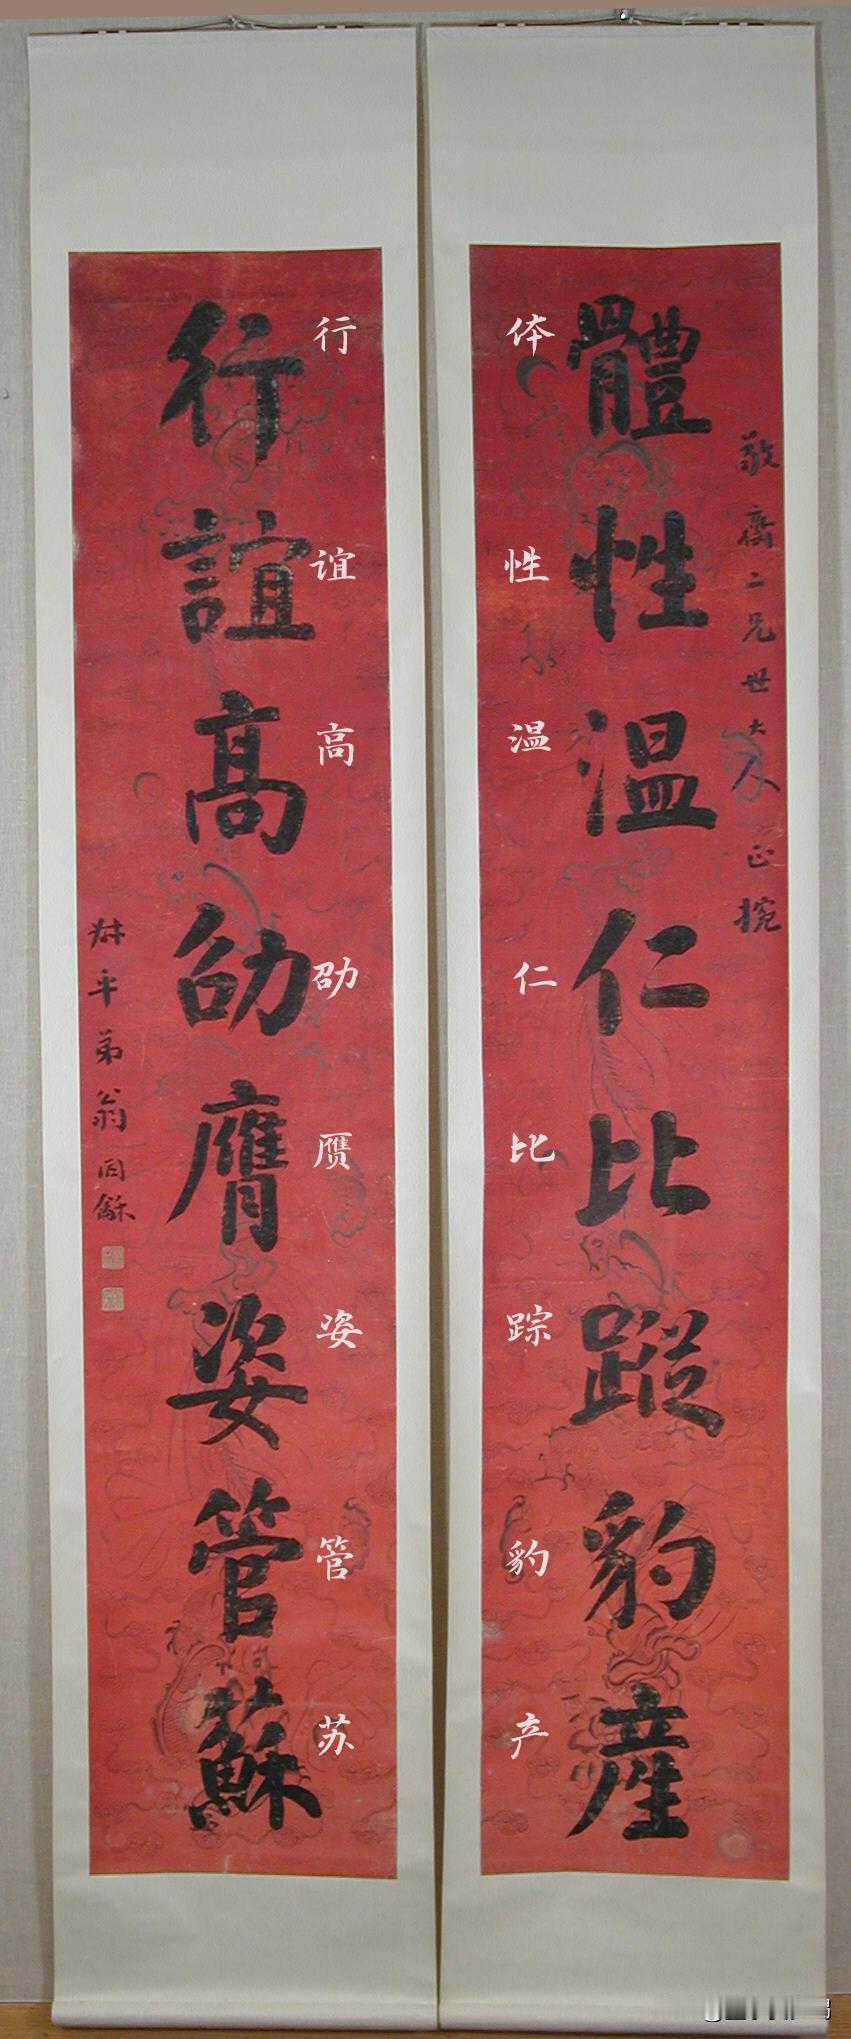 敬齋二兄世大人正捥
體性温仁比蹤豹產
体性温仁比踪豹产
行谊高劭赝姿管苏
行誼高劭膺姿管蘇
叔平弟翁同龢